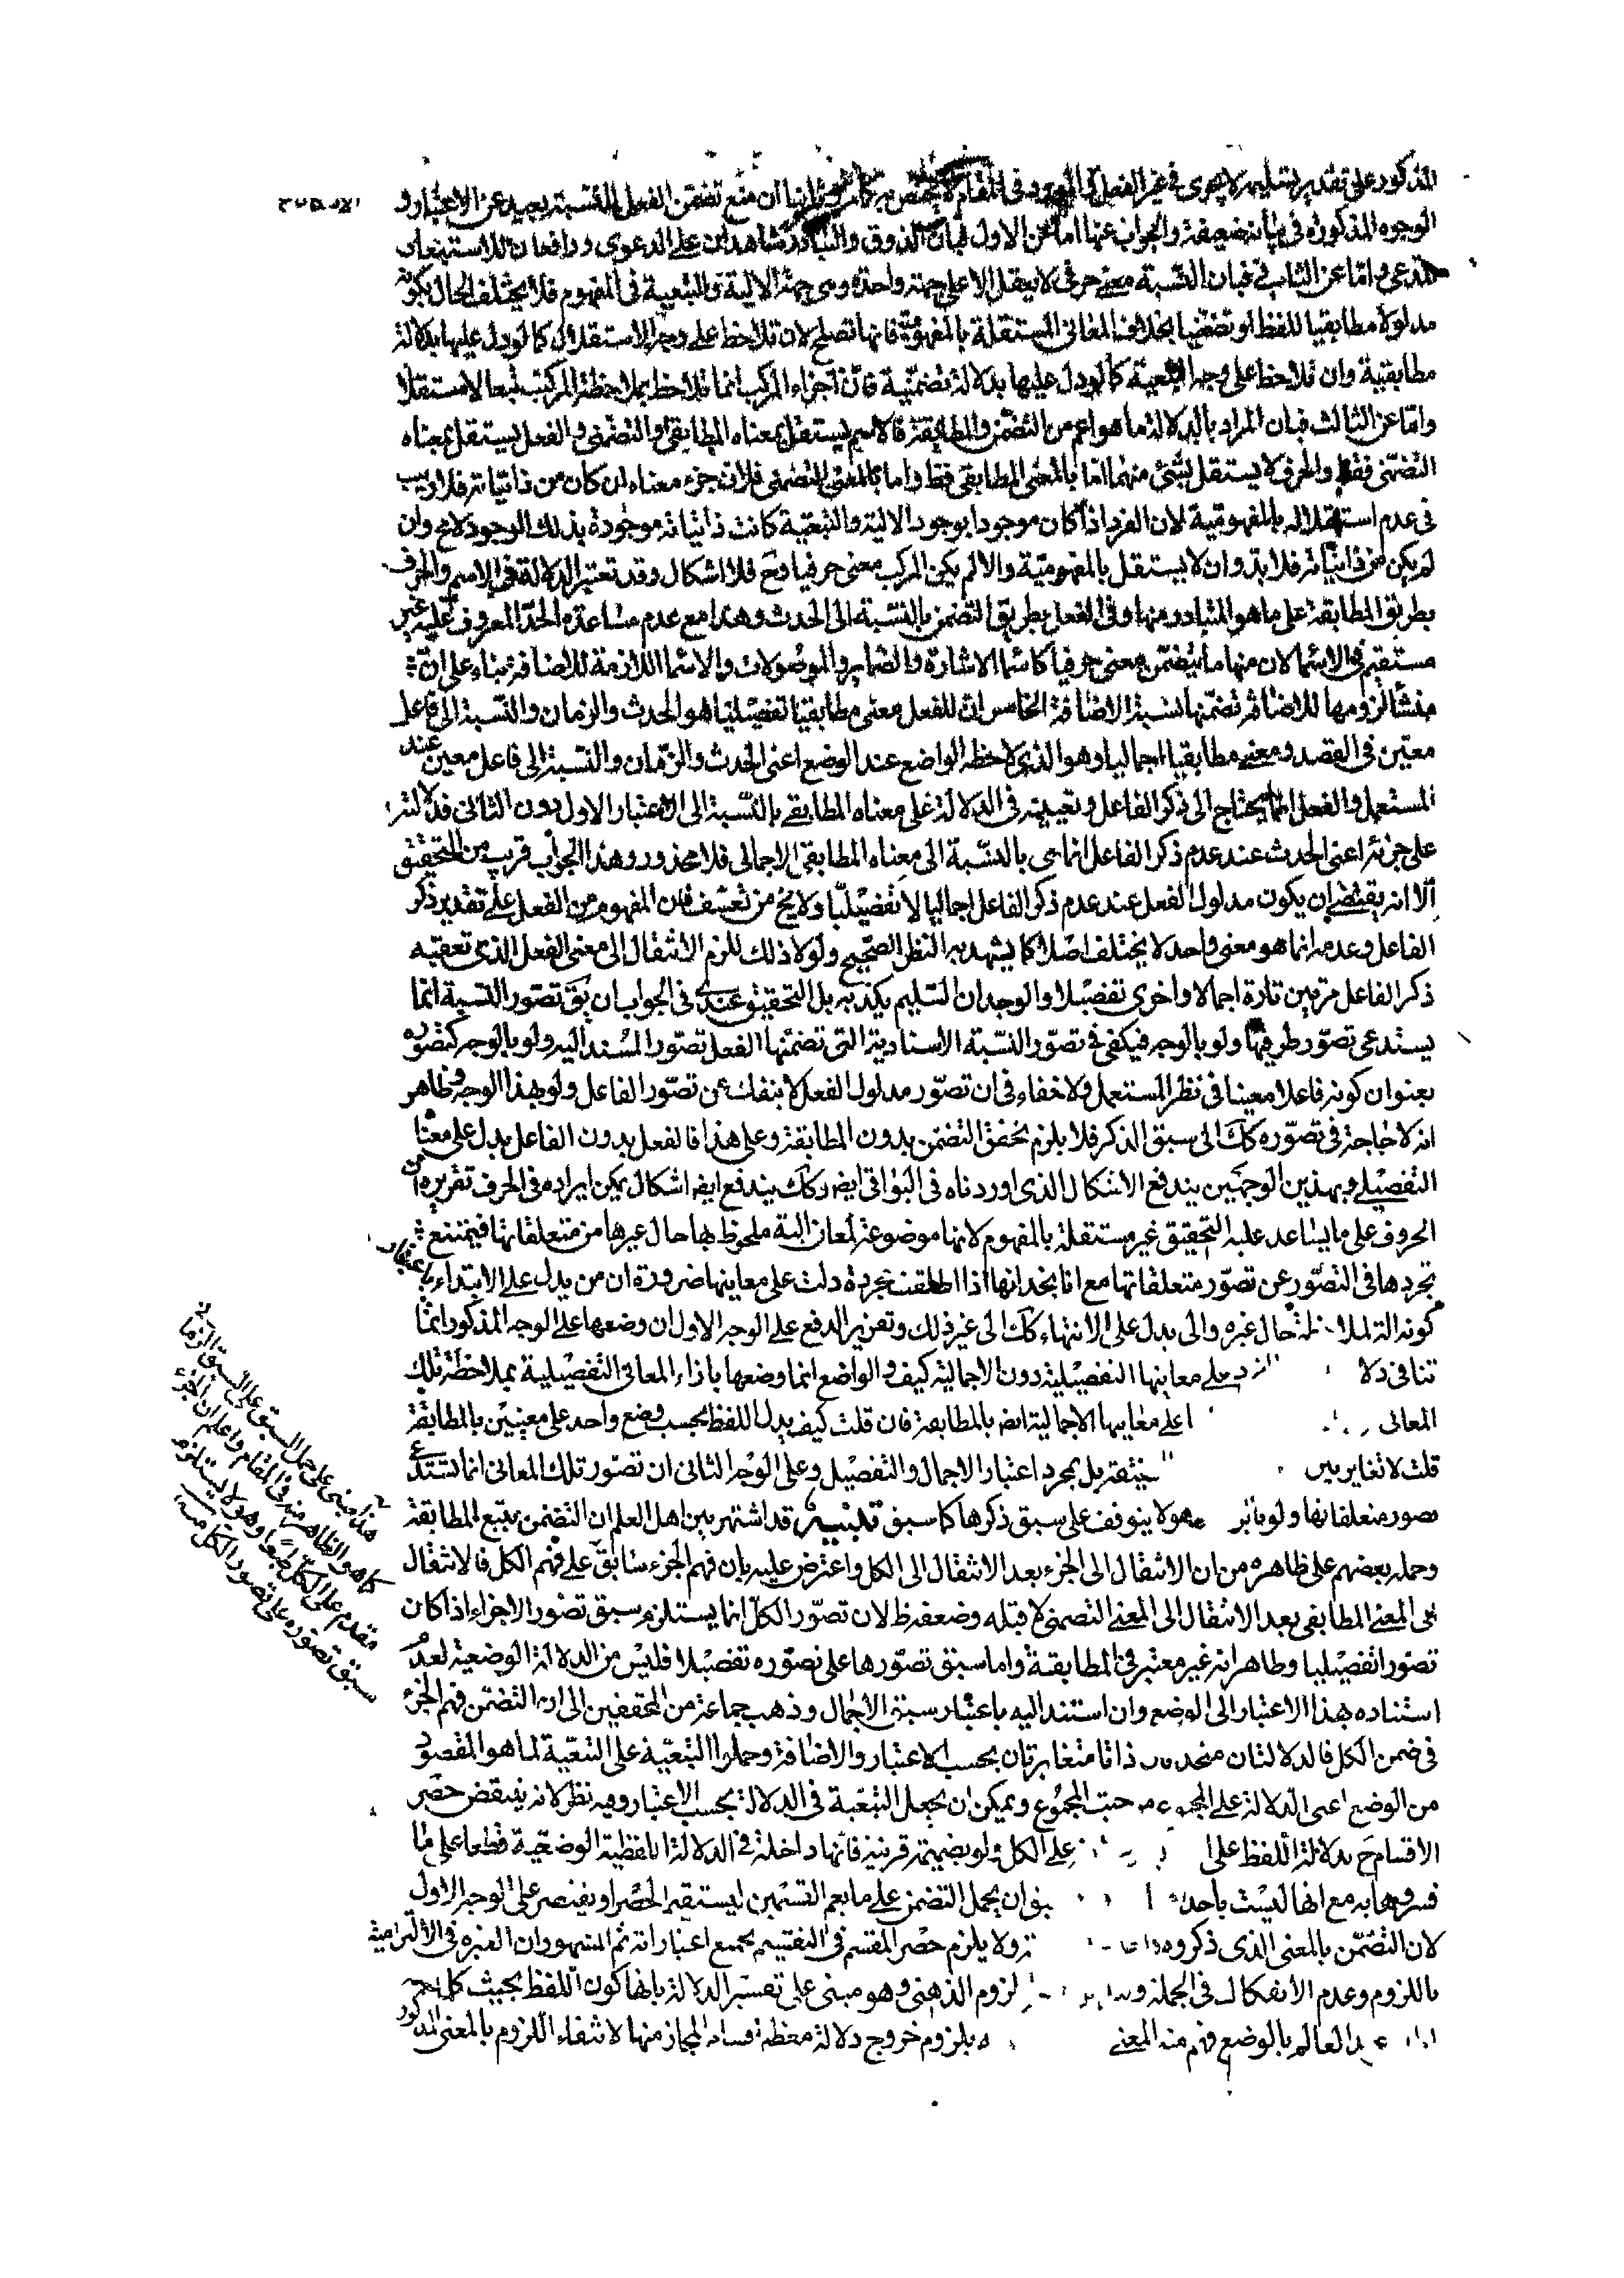 المذكور على تقدير تسليمه لا يجرى في غير الفعل في المقام لا يختص به ثانيا ان منع تضمن الفعل للنسبة بعيد عن الاعتبار و
الوجوه المذكورة في بيانه ضعيفة والجواب عنها اما عن الاول فبان الذوق والتبادر شاهدان على الدعوى ودافعان للاستبعاد
المدعى واما عن الثانى فبان النسبة معنى حرفى لا يعقل الا على جهة واحدة وهى جهة الالية والتبعية في المفهوم فلا يختلف الحال بكونه
مدلولا مطابقيا للفظ او تضمنيا بخلاف المعانى المستقلة بالمفهومية فانها تصلح لان تلاحظ على وجه الاستقلال كما لو دل عليها بدلالة
مطابقية وان تلاحظ على وجه التبعية كما لو دل عليها بدلالة تضمنية فان اجزاء المركب انما تلاحظ بملاحظة المركب تبعا لا استقلالا
واما عن الثالث فبان المراد بالدلالة ما هو اعم من التضمن والمطابقة فالاسم يستقل بمعناه المطابقى والتضمنى والفعل يستقل بمعناه
التضمنى فقط والحرف لا يستقل بشئ منهما اما بالمعنى المطابقى فظ واما بالمعنى التضمنى فلان جزء معناه ان كان من ذاتياته فلا ريب
في عدم استقلاله بالمفهومية لان الفرد اذا كان موجودا بوجود الالية والتبعية كانت ذاتياته موجودة بذلك الوجود لا مح وان
لم يكن من ذاتياته فلا بد وان لا يستقل بالمفهومية والا لم يكن المركب معنى حرفيا وح فلا اشكال وقد تعتبر الدلالة في الاسم والحرف
بطريق المطابقة على ما هو المتبادر منها وفى الفعل بطريق التضمن بالنسبة الى الحدث وهذا مع عدم مساعدة الحد المعروف عليه غير
مستقيم في الاسماء لان منها ما يتضمن معنى حرفيا كاسماء الاشارة والضماير والموصولات والاسماء اللازمة للاضافة بناء على ان
منشأ لزومها للاضافة تضمنها نسبة الاضافة الخامس ان للفعل معنى مطابقيا تفصيليا هو الحدث والزمان والنسبة الى فاعل
معين في القصد ومعنى مطابقيا اجماليا وهو الذى لاحظه الواضع عند الوضع اعنى الحدث والزمان والنسبة الى فاعل معين عند
المستعمل والفعل انما يحتاج الى ذكر الفاعل وتعيينه في الدلالة على معناه المطابقى بالنسبة الى الاعتبار الاول دون الثانى فدلالته
على جزئه اعنى الحدث عند عدم ذكر الفاعل انما هى بالنسبة الى معناه المطابقى الاجمالى فلا محذور وهذا الجواب قريب من التحقيق
الا انه يقتضى ان يكون مدلول الفعل عند عدم ذكر الفاعل اجماليا لا تفصيليا ولا يخ من تعسف فان المفهوم من الفعل على تقدير ذكر
الفاعل وعدمه انما هو معنى واحد لا يختلف اصلا كما يشهد به النظر الصحيح ولولا ذلك للزم الانتقال الى معنى الفعل الذى تعقبه
ذكر الفاعل مرتين تارة اجمالا واخرى تفصيلا والوجدان السليم يكذبه بل التحقيق عندى في الجواب ان يق تصور النسبة انما
يستدعى تصور طرفيها ولو بالوجه فيكفى في تصور النسبة الاسنادية التى تضمنها الفعل تصور المسند اليه ولو بالوجه كتصوره
بعنوان كونه فاعلا معينا في نظر المستعمل ولا خفاء في ان تصور مدلول الفعل لا ينفك عن تصور الفاعل ولو بهذا الوجه وظاهر
انه لا حاجة في تصوره كك الى سبق الذكر فلا يلزم تحقق التضمن بدون المطابقة وعلى هذا فالفعل بدون الفاعل يدل على معناه
التفصيلى وبهذين الوجهين يندفع الاشكال الذى اوردناه في البواقى ايض وكك يندفع ايض اشكال يمكن ايراده في الحرف تقريره ان
الحروف على ما يساعد عليه التحقيق غير مستقلة بالمفهوم لانها موضوعة لمعان الية ملحوظ بها حال غيرها من متعلقاتها فيمتنع
تجردها في التصور عن تصور متعلقاتها مع انا نجد انها اذا اطلقت مجردة دلت على معاينها ضرورة ان من يدل على الابتداء باعتبار
كونه الة لملاحظة حال غيره والى يدل على الانتهاء كك الى غير ذلك وتقرير الدفع على الوجه الاول ان وضعها على الوجه المذكور انما
تنافى دلا على معاينها التفصيلية دون الاجمالية كيف والواضع انما وضعها بازاء المعانى التفصيلية بملاحظة تلك
المعانى على معاينها الاجمالية ايض بالمطابقة فان قلت كيف يدل اللفظ بحسب وضع واحد على معنيين بالمطابقة
قلت لا تغاير بين حقيقة بل بمجرد اعتبار الاجمال والتفصيل وعلى الوجه الثانى ان تصور تلك المعانى انما تستدعى
تصور متعلقاتها ولو وهو لا يتوقف على سبق ذكرها كما سبق تنبيه قد اشتهر بين اهل العلم ان التضمن يتبع المطابقة
وحمله بعضهم على ظاهره من ان الانتقال الى الجزء بعد الانتقال الى الكل واعترض عليه بان فهم الجزء سابق على فهم الكل فالانتقال
الى المعنى المطابقى بعد الانتقال الى المعنى التضمنى لا قبله وضعفه ظ لان تصور الكل انما يستلزم سبق تصور الاجزاء اذا كان
تصورا تفصيليا وظاهر انه غير معتبر في المطابقة واما سبق تصورها على تصوره تفصيلا فليس من الدلالة الوضعية لعدم
استناده بهذا الاعتبار الى الوضع وان استند اليه باعتبار سبق الاجمال وذهب جماعة من المحققين الى ان التضمن فهم الجزء
في ضمن الكل فالدلالتان متحدتان ذاتا متغايرتان بحسب الاعتبار والاضافة وحملوا التبعية على التبعية لما هو المقصود
من الوضع اعنى الدلالة على المجموع من حيث المجموع ويمكن ان يجعل التبعية في الدلالة بحسب الاعتبار وفيه نظر لانه ينتقض حصر
الاقسام ح بدلالة اللفظ على على الكل ولو بضميمة قرينة فانها داخلة في الدلالة اللفظية الوضعية قطعا على ما
فسروها به مع انها ليست باحد ان يحمل التضمن على ما يعم القسمين ليستقيم الحصر او يقتصر على الوجه الاول
لان التضمن بالمعنى الذى ذكروه ولا يلزم حصر المقسم في التقسيم بجميع اعتباراته ثم المشهور ان العبرة في الالتزامية
باللزوم وعدم الانفكاك في الجملة و لزوم الذهنى وهو مبنى على تفسير الدلالة بانها كون اللفظ بحيث كلما
العالم بالوضع فهم منه المعنى يلزوم خروج دلالة معظم اقسام المجاز منها لانتفاء اللزوم بالمعنى المذكور
هذا مبنى على حمل السبق على السبق الزمانى
كما هو الظاهر منه في المقام واعلم ان الجزء
مقدم على الكل طبعا وهو لا يستلزم
سبق تصوره على تصور الكل منه